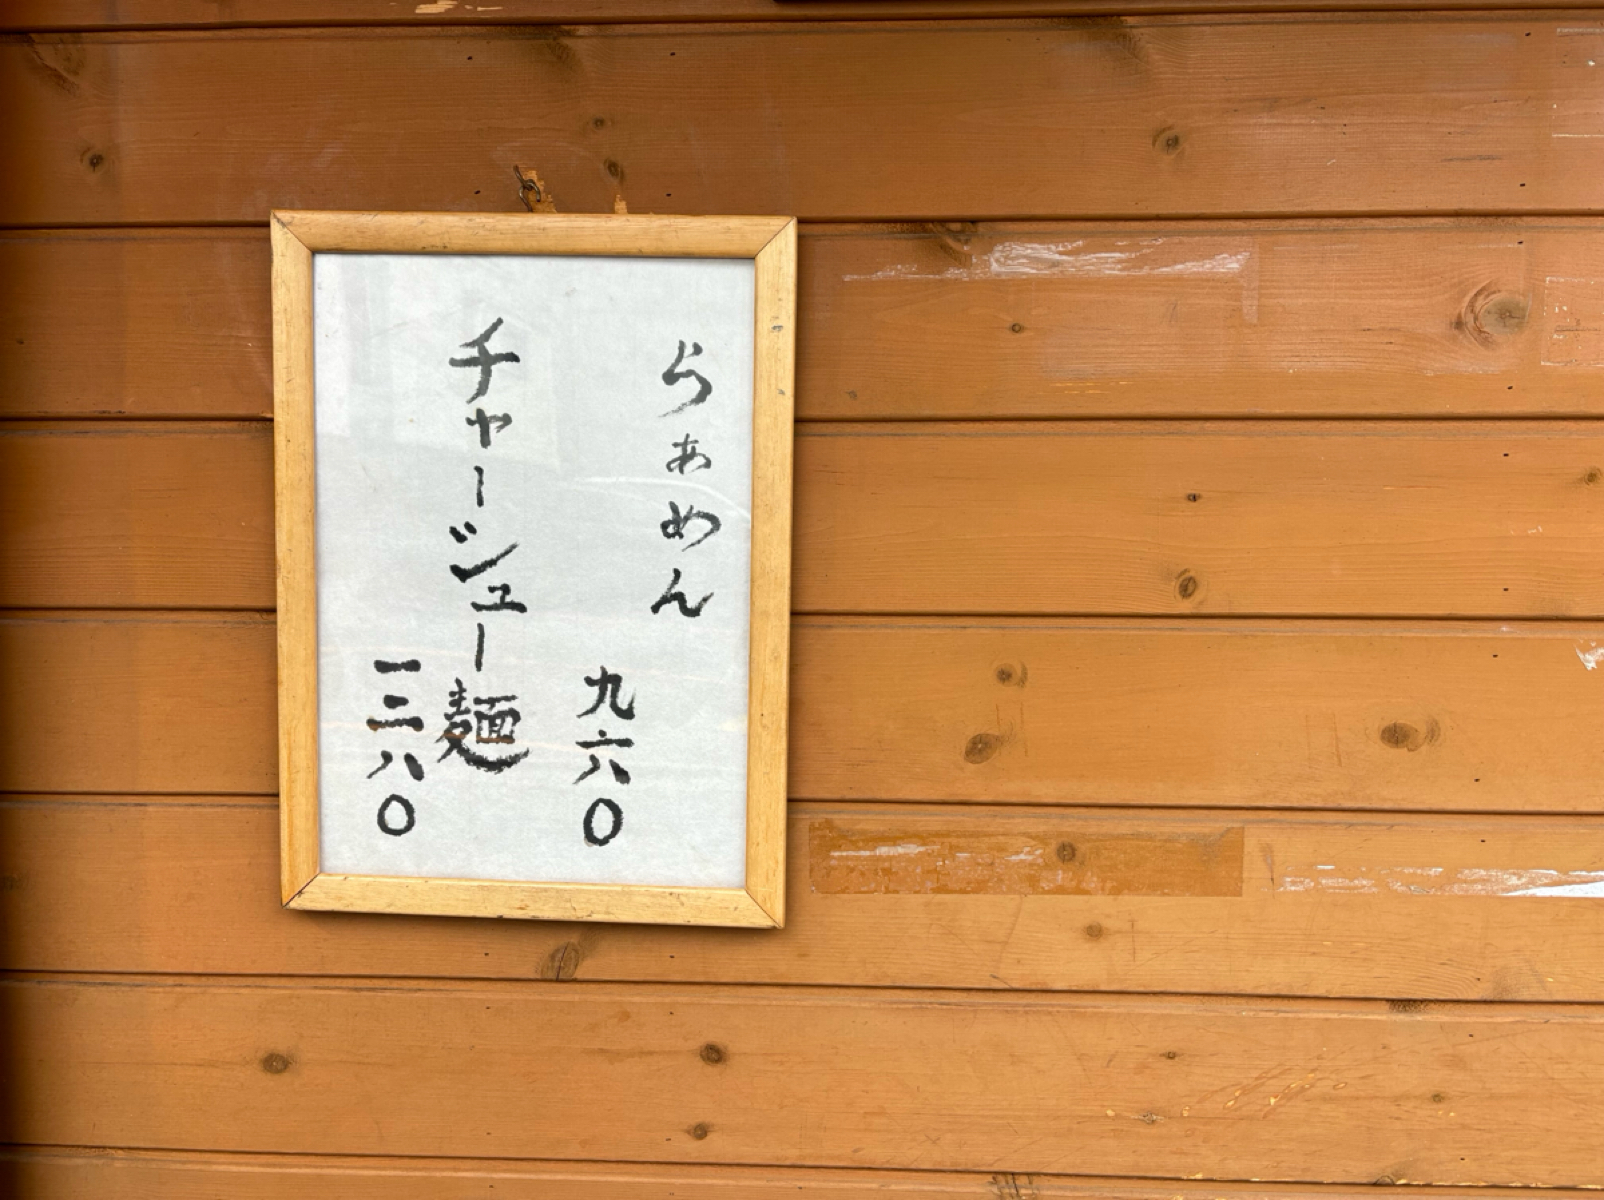 らぁめん
九六〇
チャージュー麺
一三八〇